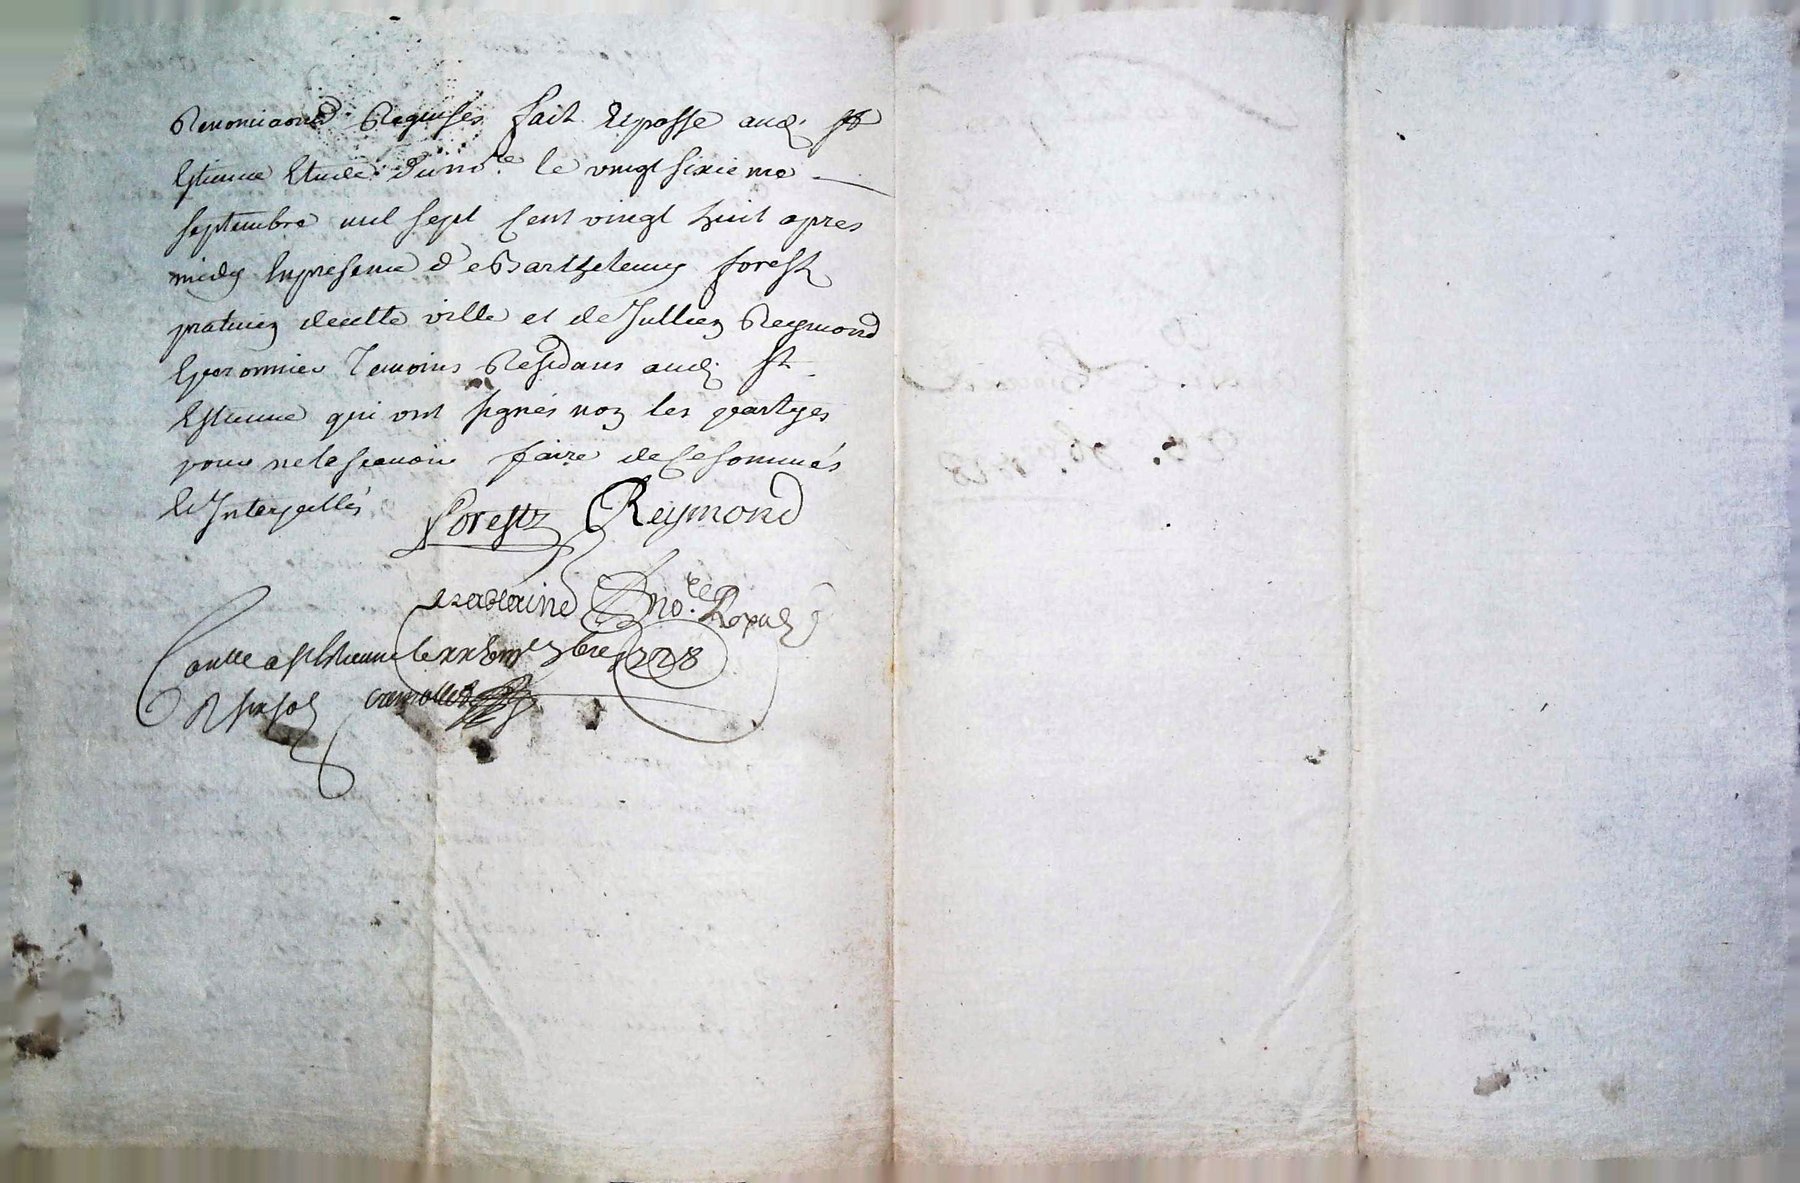 Renonciaons Requises fait et passe aud. st
Estienne Etude dud. no.re le vingt sixieme
septembre mil sept Cent vingt huit apres
midy En presence de Barthelemy forest
praticien de cette ville et de Jullien Reymond
Eperonnier Temoins Residans aud. st
Estienne qui ont signés non les partyes
pour ne le scauoir faire de Ce sommés
Et Interpellés
Forestz Reymond
no.re Royal
Conlle a st Estienne le 7bre 1728
R six sols